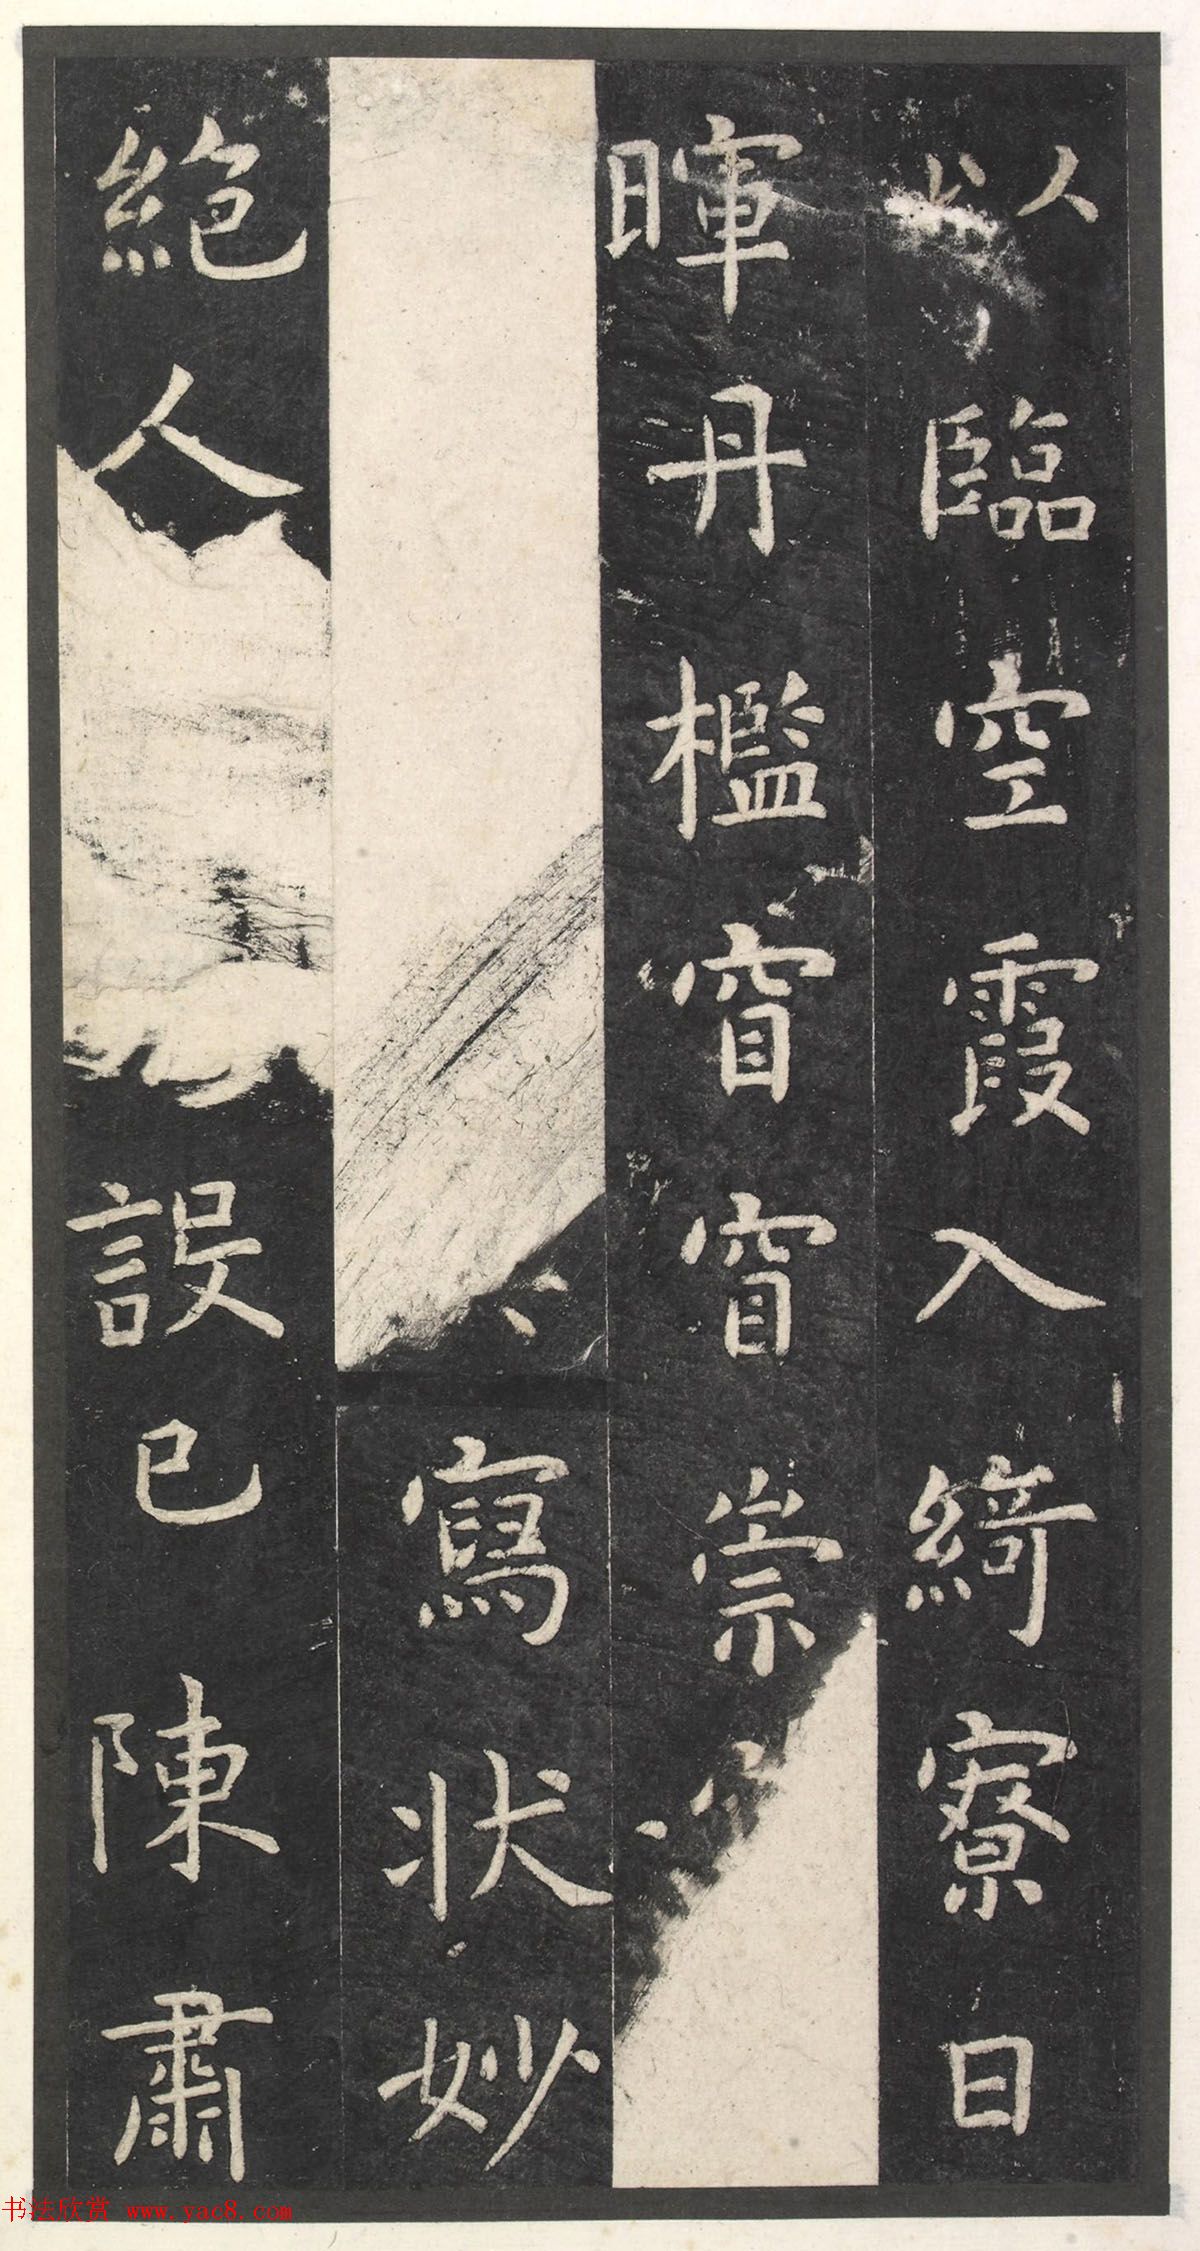 臨空霞入綺寮日
暉丹檻窅窅崇
寫狀妙
絕人誤已陳肅
书法欣赏 www.yac8.com